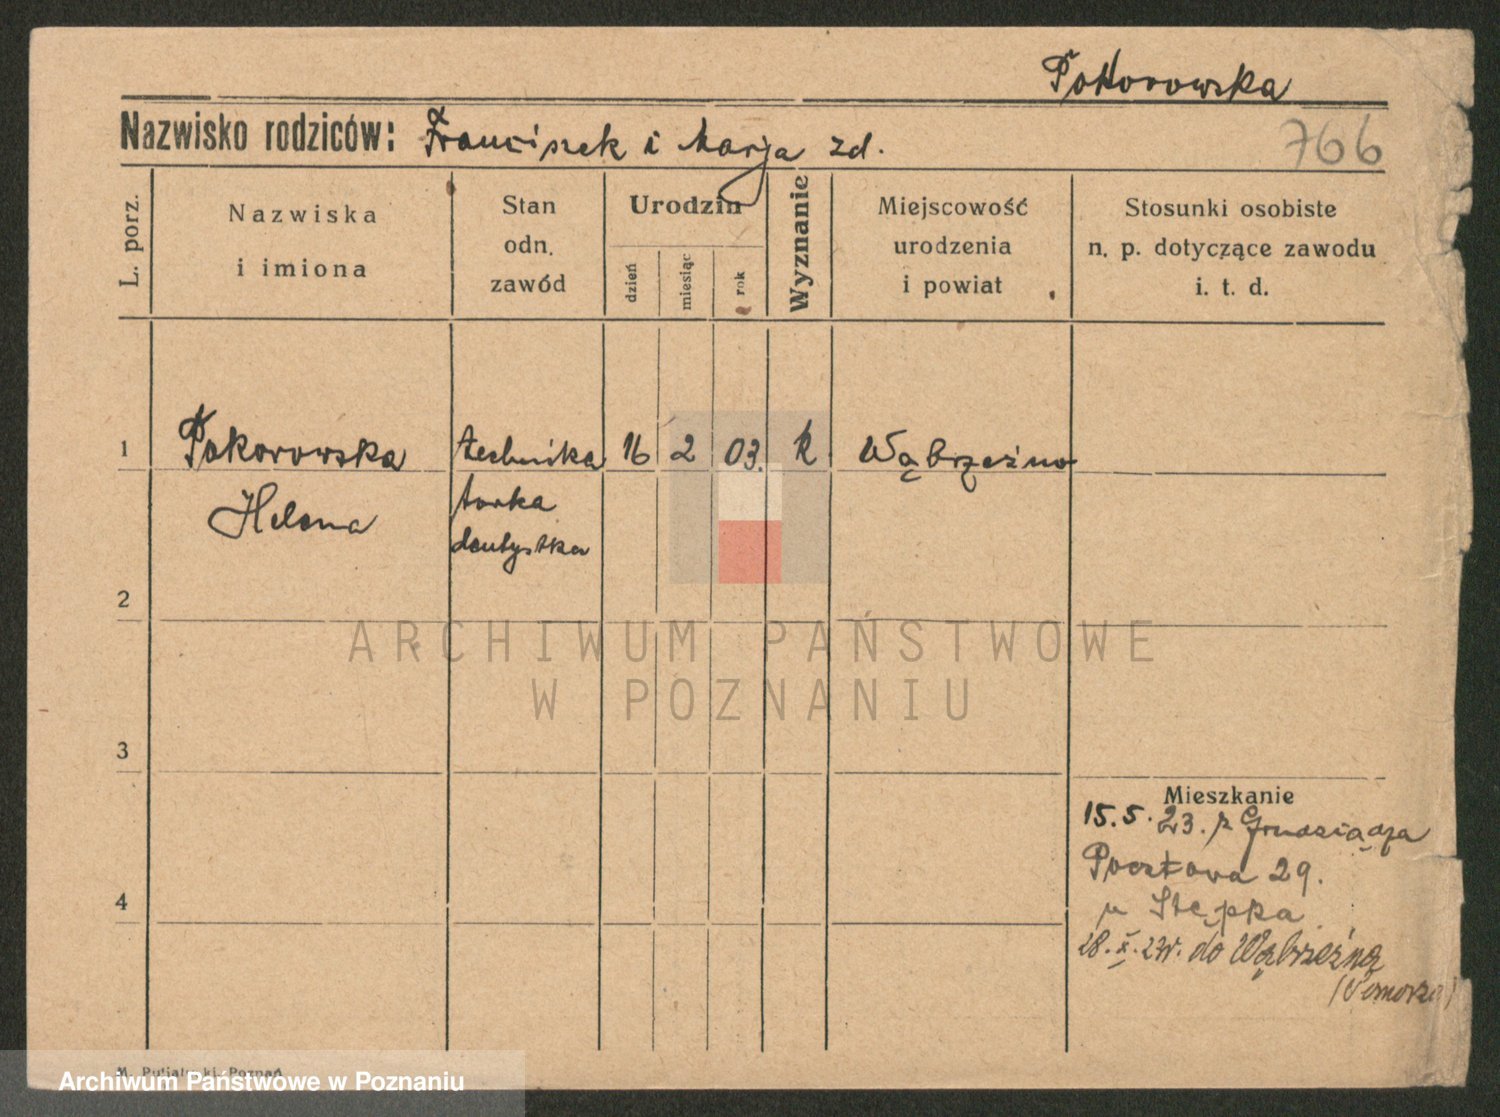 Pokorowska
Nazwisko rodziców: Franciszek i Marja zd.
766
L. porz.
Nazwiska
i imiona
Stan
odn.
zawód
Urodzin
dzień
miesiąc
rok
Wyznanie
Miejscowość
urodzenia
i powiat
Stosunki osobiste
n. p. dotyczące zawodu
i. t. d.
1 Pokorowska technika 16 2 03. k Wąbrzeźno
Helena torka
dentystka
2
ARCHIWUM PAŃSTWOWE
W POZNANIU
3
Mieszkanie
15.5.23. z Grudziądza
Pocztowa 29.
4
u Stępka
28.X.23r. do Wąbrzeźna
(Pomorze)
M. Putiatycki, Poznań
Archiwum Państwowe w Poznaniu